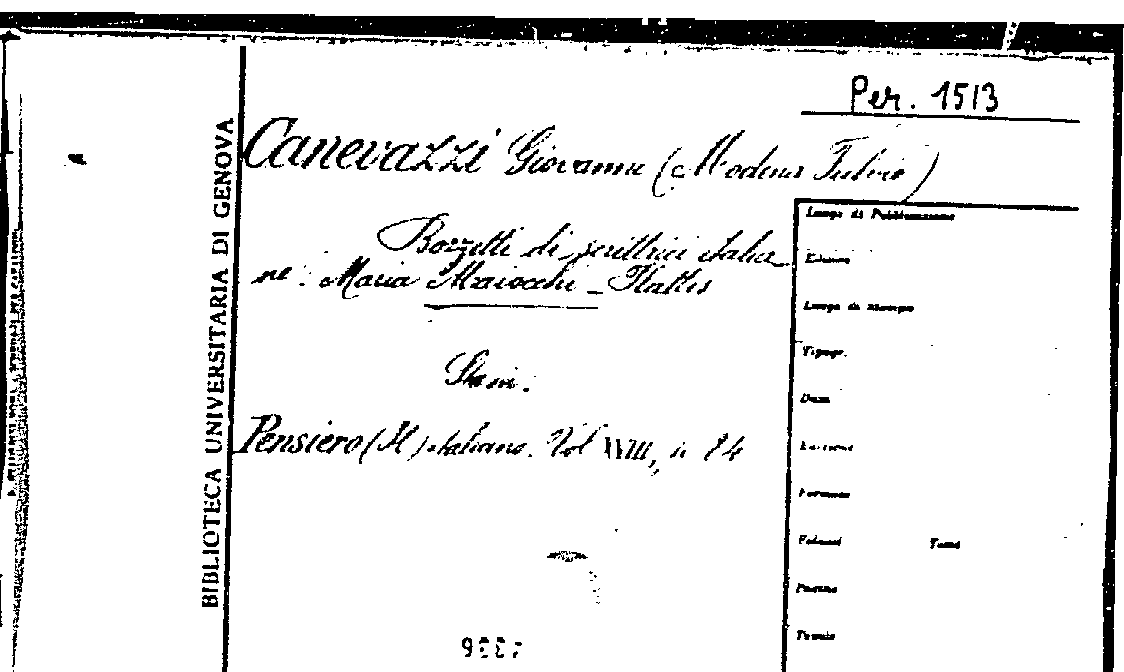 Per. 1513
BIBLIOTECA UNIVERSITARIA DI GENOVA
Canevazzi Giovanni (Modena Fulvio)
Bozzetti di scrittrici italia-
ne: Maria Maiocchi - Plattis
Pensiero (Il) italiano. Vol XVIII, n 84
Luogo di Pubblicazione
Edizione
Luogo di stampa
Tipogr.
Data
Formato
Volumi Tomi
Pagine